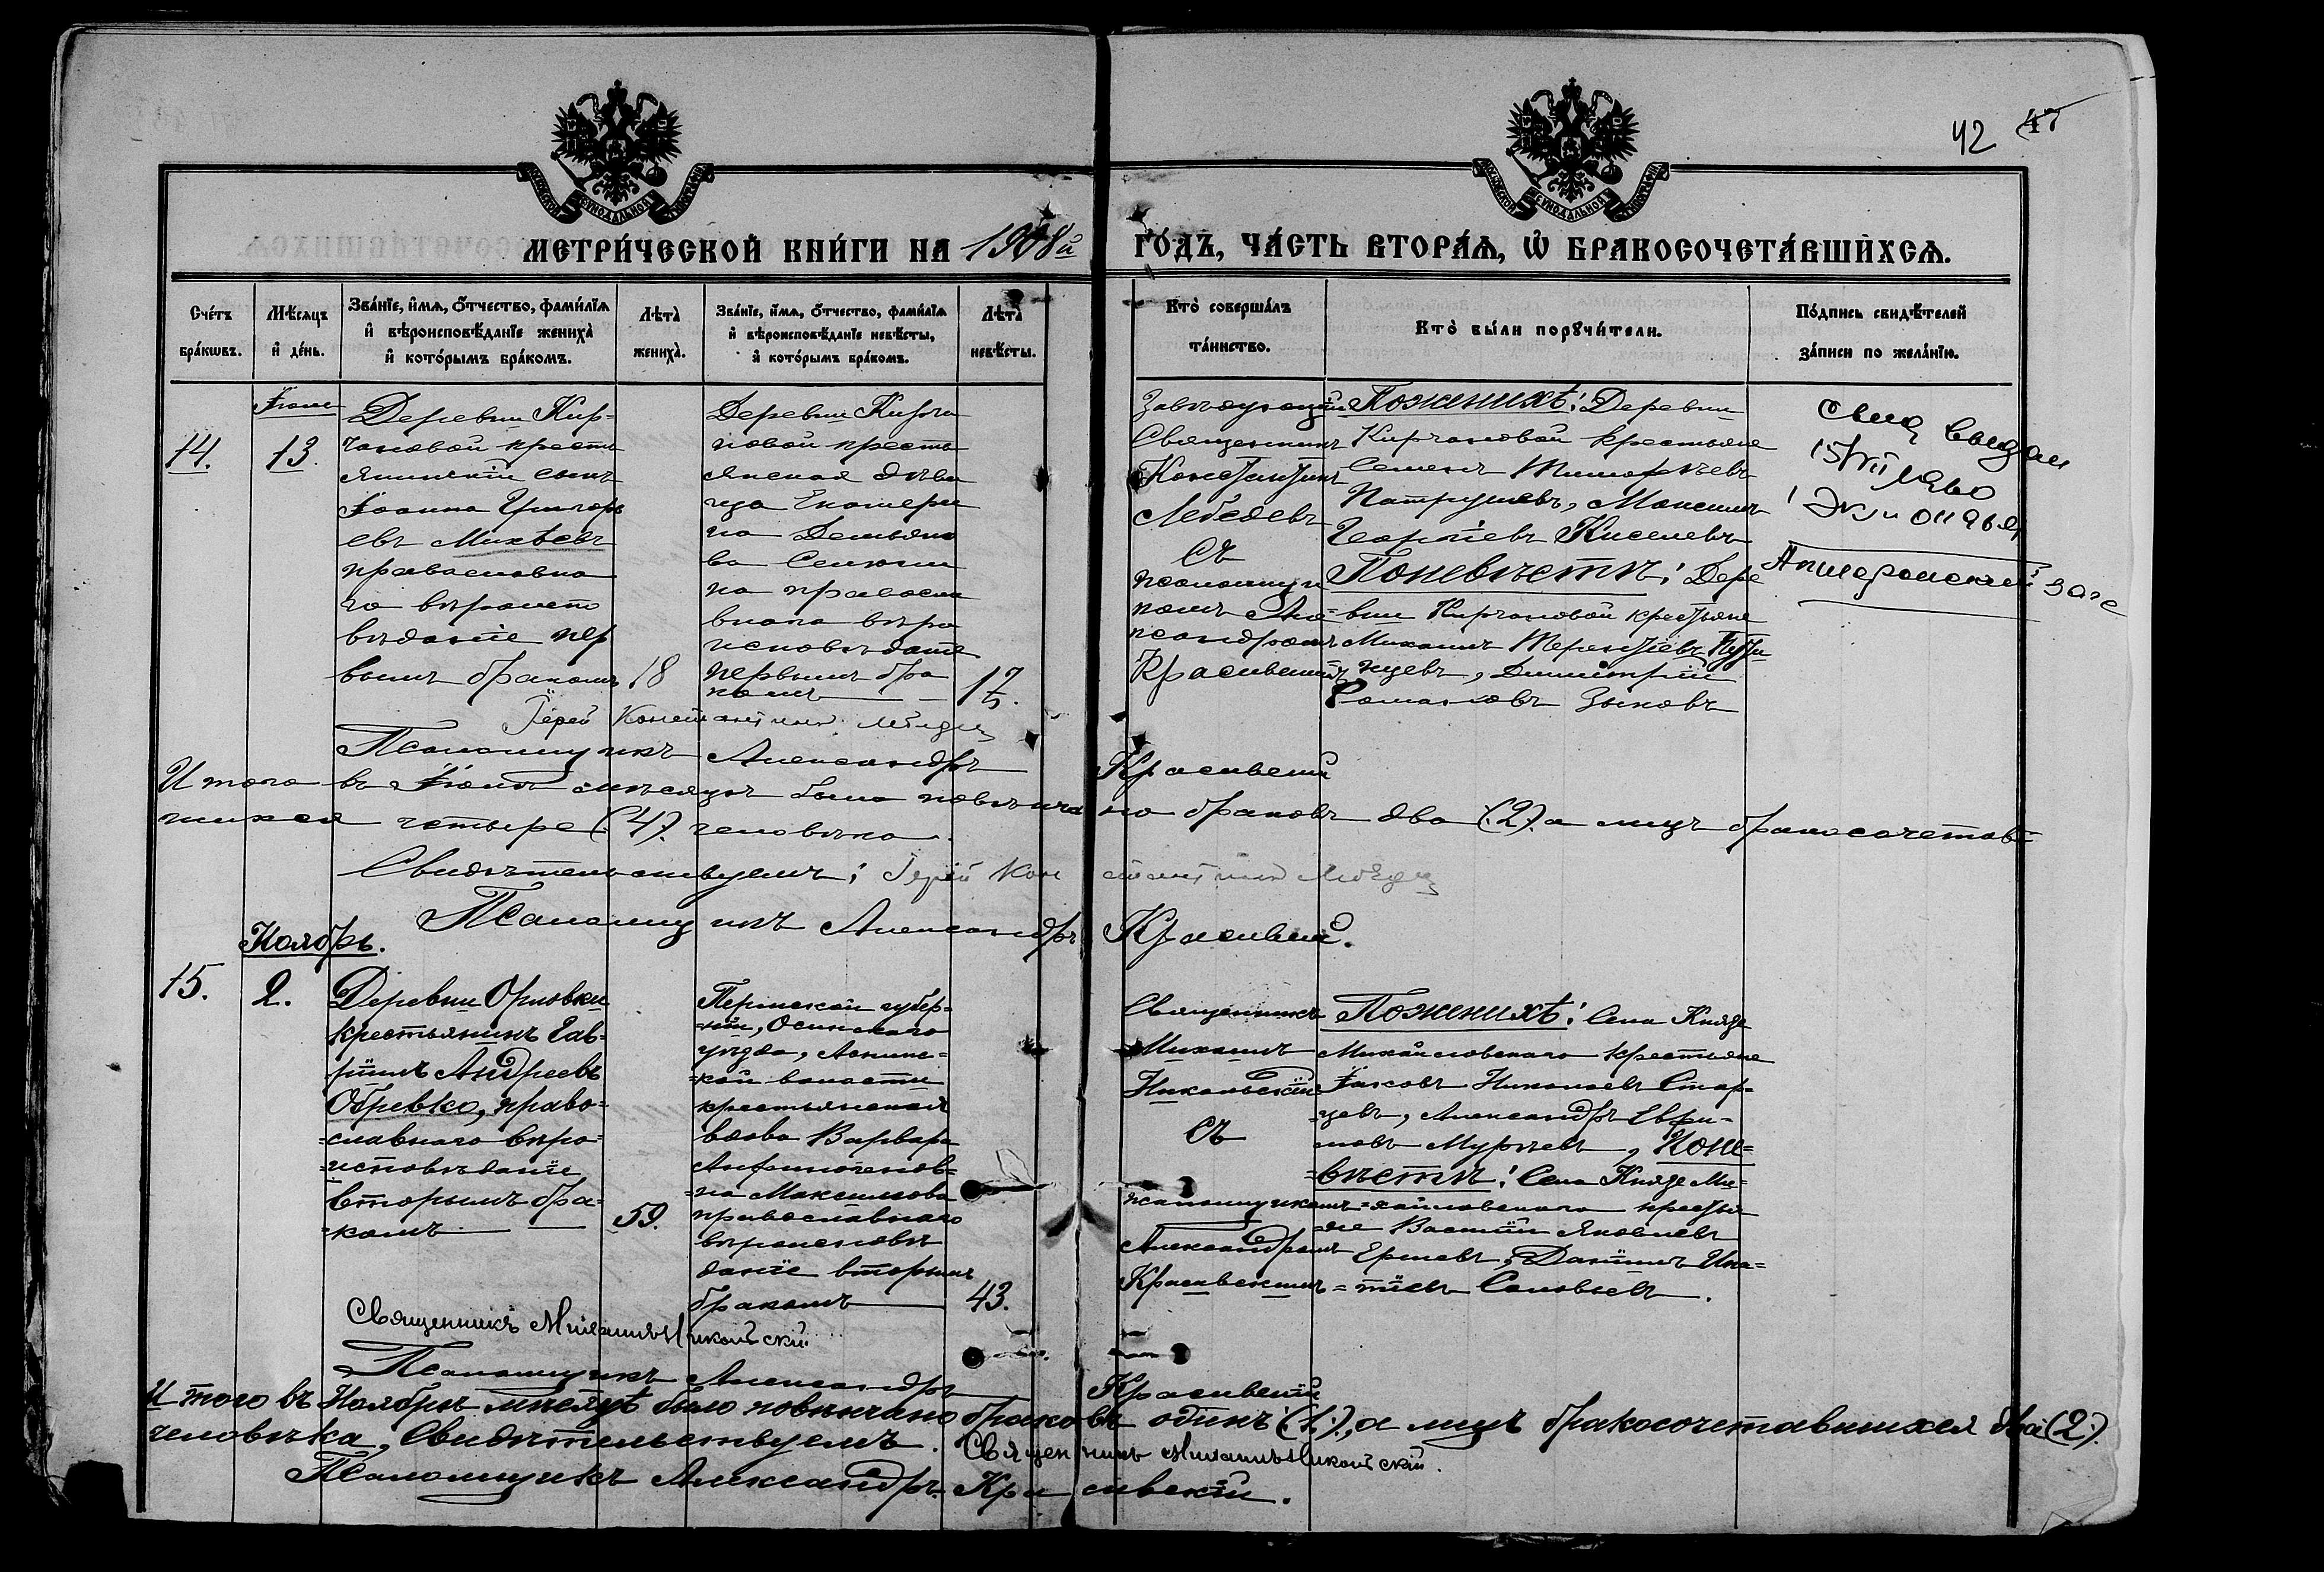 42 47
МЕТРИ́ЧЕСКОЙ КНИ́ГИ НА 1908й ГО́ДЪ, ЧА́СТЬ ВТОРА́Я, Ѡ БРАКОСОЧЕТА́ВШИХСЯ.
Сче́тъ бра́кѡвъ.
Мѣ́сяцъ и҆ де́нь.
Зва́нїе, и҆́мя, ѻ҆́тчество, фами́лїя
и҆ вѣроисповѣ́данїе жениха̀
и҆ кото́рымъ бра́комъ.
Лѣта̀ жениха̀.
Зва́нїе, и҆́мя, ѻ҆́тчество, фами́лїя
и҆ вѣроисповѣ́данїе невѣ́сты,
и҆ кото́рымъ бра́комъ.
Лѣта̀ невѣ́сты.
Кто̀ соверша́лъ
та́инство.
Кто̀ бы́ли порꙋчи́тели.
По́дпись свидѣ́телей
за́писи по жела́нїю.
14.
13.
Деревни Кир-
чановой кресть
янинскій сынъ
Іоаннъ Григорь
евъ Михѣевъ
православна
го вѣроиспо
вѣданіе пер
вымъ бракомъ
18
Деревни Кирча
новой кресть
янская дѣви
ца Екатери
на Демьяно
ва
на правосла
внаго вѣро
исповѣданіе
первымъ бра
комъ
17
Завѣдующій
Священникъ
Константинъ
Лебедевъ
Съ
псаломщи
комъ Але-
ксандромъ
Красивскимъ
По женихѣ: Деревни
Кирчановой крестьяне
Семенъ Тимофѣевъ
Патрушевъ, Максимъ
Георгіевъ Киселевъ
По невѣстѣ: Дере
вни Кирчановой крестьяне
Михаилъ Терентіевъ
Димитрій
Романовъ Зыковъ
Іерей Константинъ Лебедевъ
Псаломщикъ Александръ Красивскій
Итого въ Іюнѣ мѣсяцѣ было повѣнча но браковъ два (2). а лицъ бракосочетав-
шихся четыре (4). человѣка.
Свидѣтельствуемъ: Іерей Константинъ Лебедевъ
Псаломщикъ Александръ Красивскій.
Ноябрь.
15.
2.
Деревни Орловки
крестьянинъ Гав-
ріилъ Андреевъ
Обревко, право-
=славнаго вѣро-
=исповѣданіе
вторымъ бра-
=комъ
59.
Пермской губер-
=ніи, Осинскаго
уѣзда,
=кой волости
крестьянская
вдова Варвара
на Максимова
православнаго
вѣроисповѣ
даніе вторымъ
бракомъ
43.
Священникъ
Михаилъ
Никольскій
Съ
псаломщикомъ
Александромъ
Красивскимъ
По женихѣ: Села Князе
Михайловскаго крестьяне
Іаковъ Николаевъ Стар-
=цевъ, Александръ Ефи-
мовъ Мурзевъ, По не-
=вѣстѣ: Села Князе Ми-
=хайловскаго крестья
=не Василій Яковлевъ
Ершевъ, Даніилъ Игна-
=тіевъ Соловьевъ.
Священникъ Михаилъ Никольскій.
Псаломщикъ Александръ Красивскій
Итого въ Ноябрѣ мѣсяцѣ было повѣнчано браковъ одинъ (1)., а лицъ бракосочетавшихся два (2).
человѣка, Свидѣтельствуемъ. Священникъ Михаилъ Никольскій.
Псаломщикъ Александръ Красивскій.